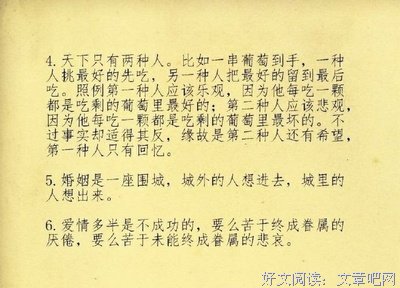 4.天下只有两种人。比如一串葡萄到手，一种
人挑最好的先吃，另一种人把最好的留到最后
吃。照例第一种人应该乐观，因为他每吃一颗
都是吃剩的葡萄里最好的；第二种人应该悲观，
因为他每吃一颗都是吃剩的葡萄里最坏的。不
过事实却适得其反，缘故是第二种人还有希望，
第一种人只有回忆。
5.婚姻是一座围城，城外的人想进去，城里的
人想出来。
6.爱情多半是不成功的，要么苦于终成眷属的
厌倦，要么苦于未能终成眷属的悲哀。
好文阅读：文章吧网